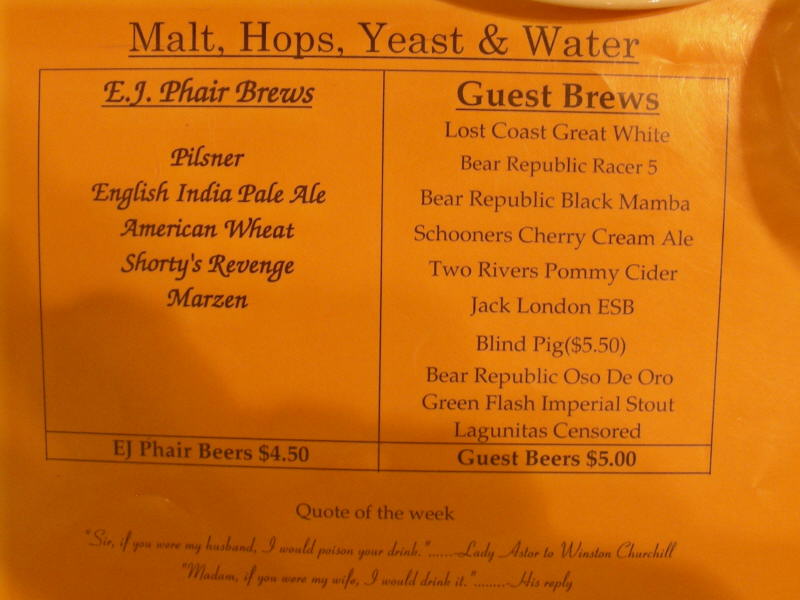 Malt, Hops, Yeast & Water
E.J. Phair Brews
Pilsner
English India Pale Ale
American Wheat
Shorty's Revenge
Marzen
EJ Phair Beers $4.50
Guest Brews
Lost Coast Great White
Bear Republic Racer 5
Bear Republic Black Mamba
Schooners Cherry Cream Ale
Two Rivers Pommy Cider
Jack London ESB
Blind Pig($5.50)
Bear Republic Oso De Oro
Green Flash Imperial Stout
Lagunitas Censored
Guest Beers $5.00
Quote of the week
"Sir, if you were my husband, I would poison your drink."......-Lady Astor to Winston Churchill
"Madam, if you were my wife, I would drink it.".........-His reply